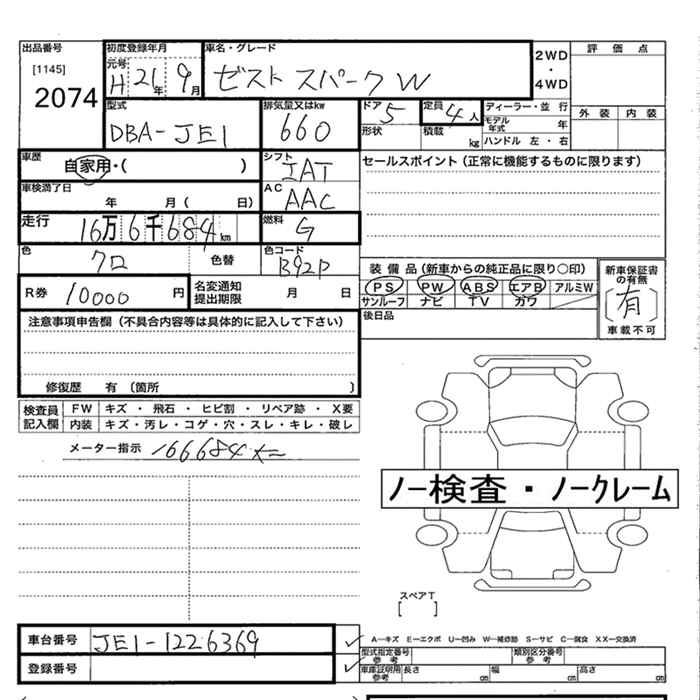 出品番号 初度登録年月 車名・グレード 2WD・4WD 評価点
[1145] 元号 H 21年 9月 ゼスト スパーク W
2074
型式 排気量又はkw ドア 5 定員 4人 ディーラー・並行 外装 内装
DBA-JE1 660 形状 積載 kg モデル年式 年
ハンドル 左・右
車歴 自家用・( ) シフト IAT セールスポイント(正常に機能するものに限ります)
車検満了日 年 月( 日) AC AAC
走行 16万6千684km 燃料 G
色 クロ 色替 色コード B92P 装備品(新車からの純正品に限り○印) 新車保証書の有無
R券 10000円 名変通知提出期限 月 日 PS PW ABS エアB アルミW (有)
サンルーフ ナビ TV ガワ 車載不可
注意事項申告欄(不具合内容等は具体的に記入して下さい) 後日品
修復歴 有 (箇所 )
検査員記入欄 FW キズ・飛石・ヒビ割・リペア跡・X要
内装 キズ・汚レ・コゲ・穴・スレ・キレ・破レ
メーター指示 166684km
ノー検査・ノークレーム
スペアT
[ ]
車台番号 JE1-1226369 A―キズ E―エクボ U―凹み W―補修跡 S―サビ C―腐食 XX―交換済
型式指定番号 参考 類別区分番号 参考
登録番号 車庫証明用参考 長さ cm 幅 cm 高さ cm